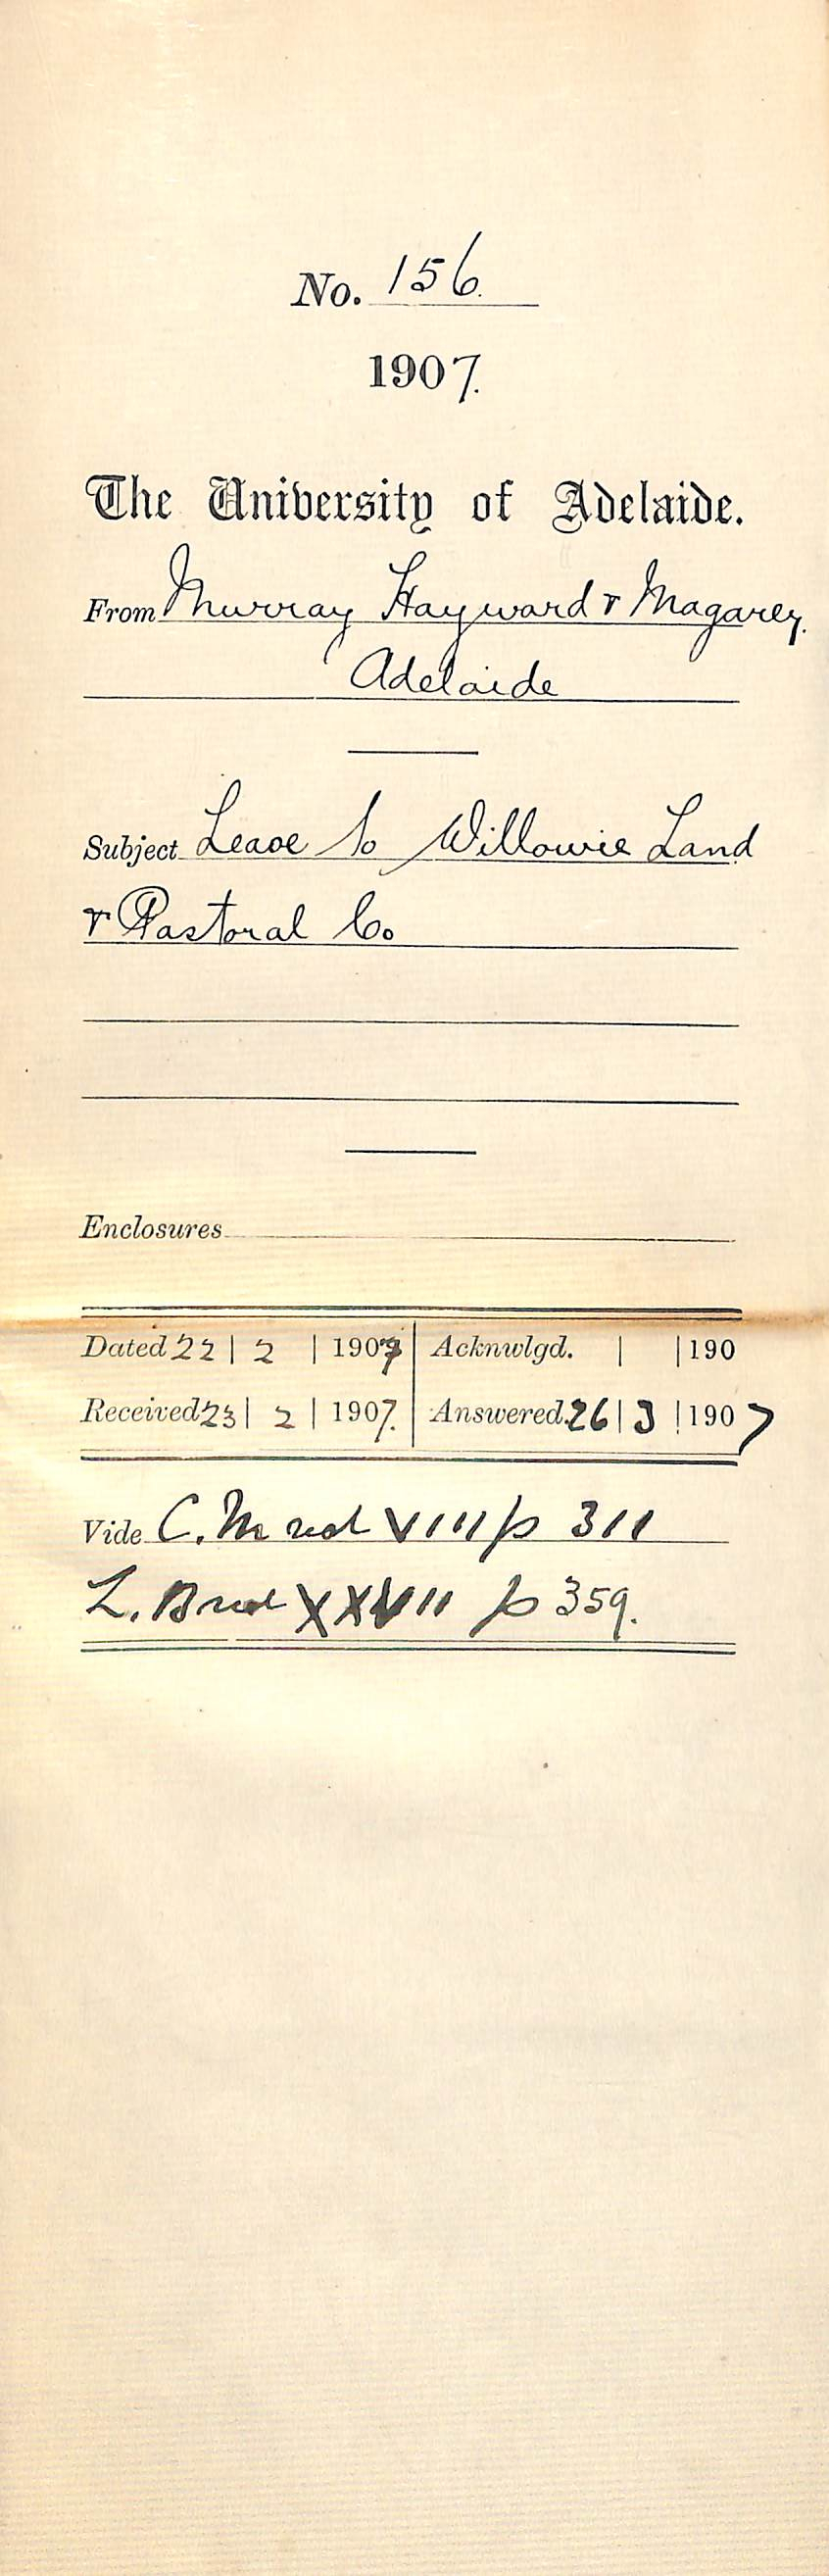 No. 156.
1907.
The University of Adelaide.
From Murray Hayward & Magarey.
Adelaide
Subject Lease to Willowie Land
& Pastoral Co
Enclosures
Dated 22 | 2 | 1907 Acknwlgd. | | 190
Received 23 | 2 | 1907. Answered. 26 | 3 | 1907
Vide C. M vol VIII p 311
L. B vol XXVII p 359.